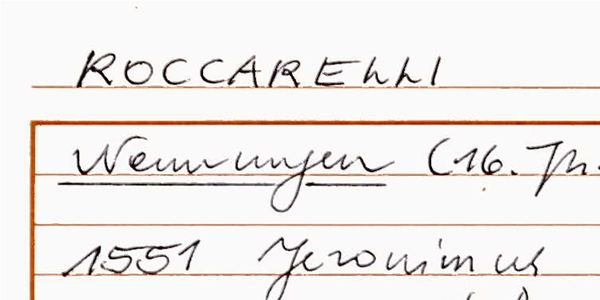 ROCCARELLI
Nennungen (16. Jh.
1551 Jeronimus